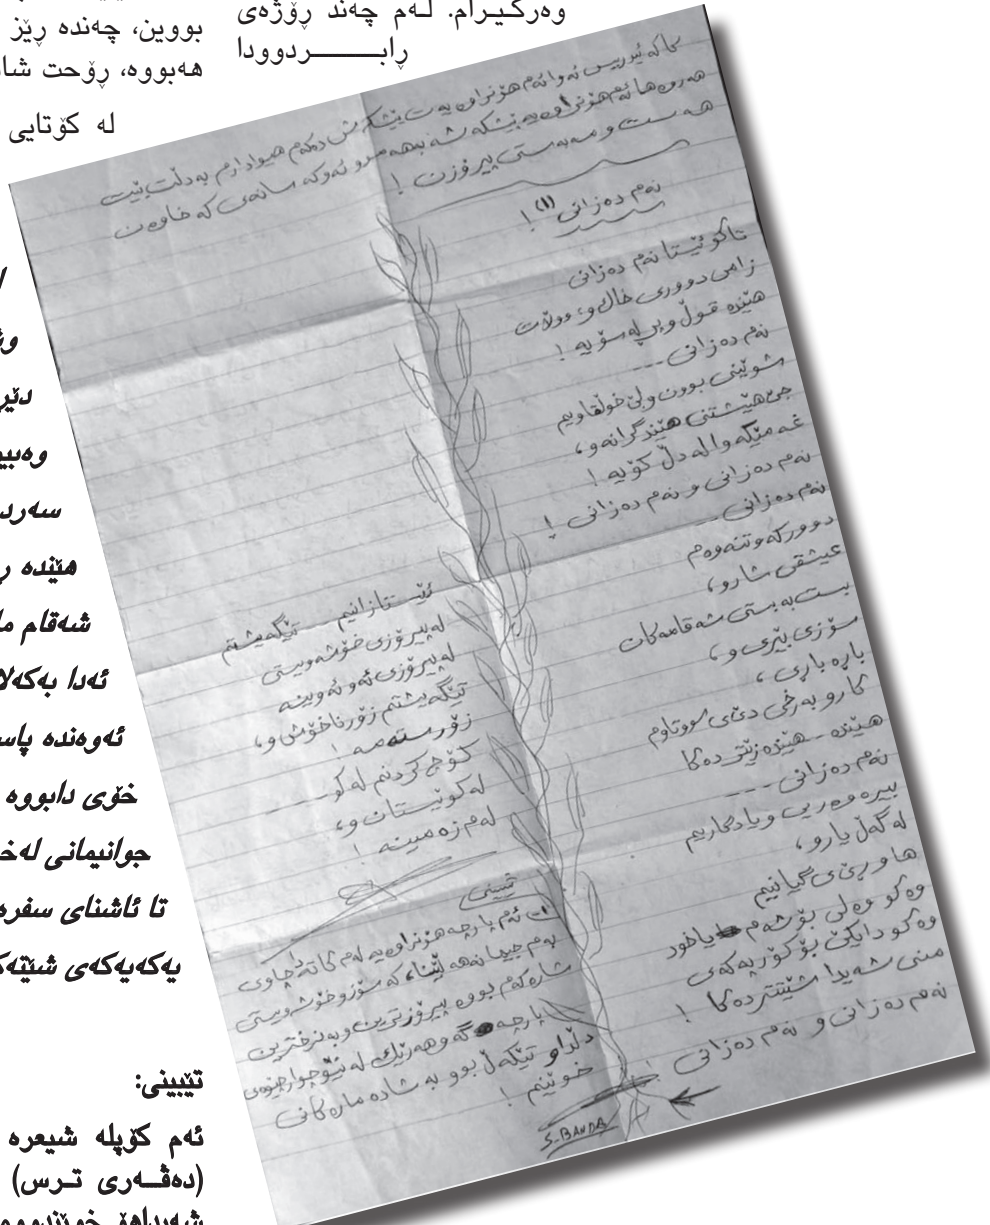 وەرگـیـرام. لـەم چەند ڕۆژەی
ڕابـــــــردوودا
بووین، چەندە ڕێز
هەبووە، ڕۆحت شا
لە کۆتایی
کاکە ئیدریس ئەوا ئەم هۆنراوەیەت پێشکەش دەکەم هیوادارم بەدڵت بێت
هەروەها ئەم هۆنراوەیە پێشکەشە بەهەموو ئەوکەسانەی کە خاوەن
هەست و مەبەستی پیرۆزن !
نەم دەزانی (١) !
تاکو ئێستا نەم دەزانی
زامی دووری خاک و، وولات
هێندە قووڵ و پڕ لەسۆیە !
نەم دەزانی ---
شوێنی بوون و لێ خوڵقاویم
جێ هێشتنی هێند گرانە و،
غەمێکە وا لە دڵ کۆیە !
نەم دەزانی و نەم دەزانی !
نەم دەزانی --
دوورکەوتنەوەم
عیشقی شار و،
بست بە بستی شەقامەکان
سۆزی بێری و،
باڕە باڕی ،
کار و بەرخی دێی سووتاوم
هێندە - هێندە زێتر دەکا
نەم دەزانی ----
بیرەوەریی و یادگاریم
لەگەڵ یار و،
هاوڕێی گیانیم
وەکو وەلی بۆ شەم یاخود
وەکو دایکێ بۆ کۆرپەکەی
منی شەیدا شێتتر دەکا !
نەم دەزانی و نەم دەزانی !
ئێستا زانیم تێگەیشتم
لەپیرۆزی خۆشەویستی
لە پیرۆزی ئەو ئەوینە
تێگەیشتم زۆر ناخۆش و،
زۆر ستەمە !
کۆچ کردنم لە کو-----
لە کوێستان و،
لەم زەمینە !
تێبینی
١- ئەم پارچە هۆنراوەیە لەم کاتەدا چاوی
بەم جیهانە هەڵێنا، کە سۆز و خۆشەویستی
شارەکەم بووە پیرۆزترین و بەنرخترین
پارچە گەوهەرێک لە نێو چوارچێوەی
دڵدا و تێکەڵ بوو بە شادەمارەکانی
خوێنم !
S-BANDA
وش
دێر
وەبیر
سەرد
هێندە ڕ
شەقام ما
ئەدا بەکەلا
ئەوەندە پاس
خۆی دابووە
جوانیمانی لەخ
تا ئاشنای سفرە
یەکەیەکەی شێتەک
تێبینی:
ئەم کۆپلە شیعرە
(دەڤــەری تـرس)